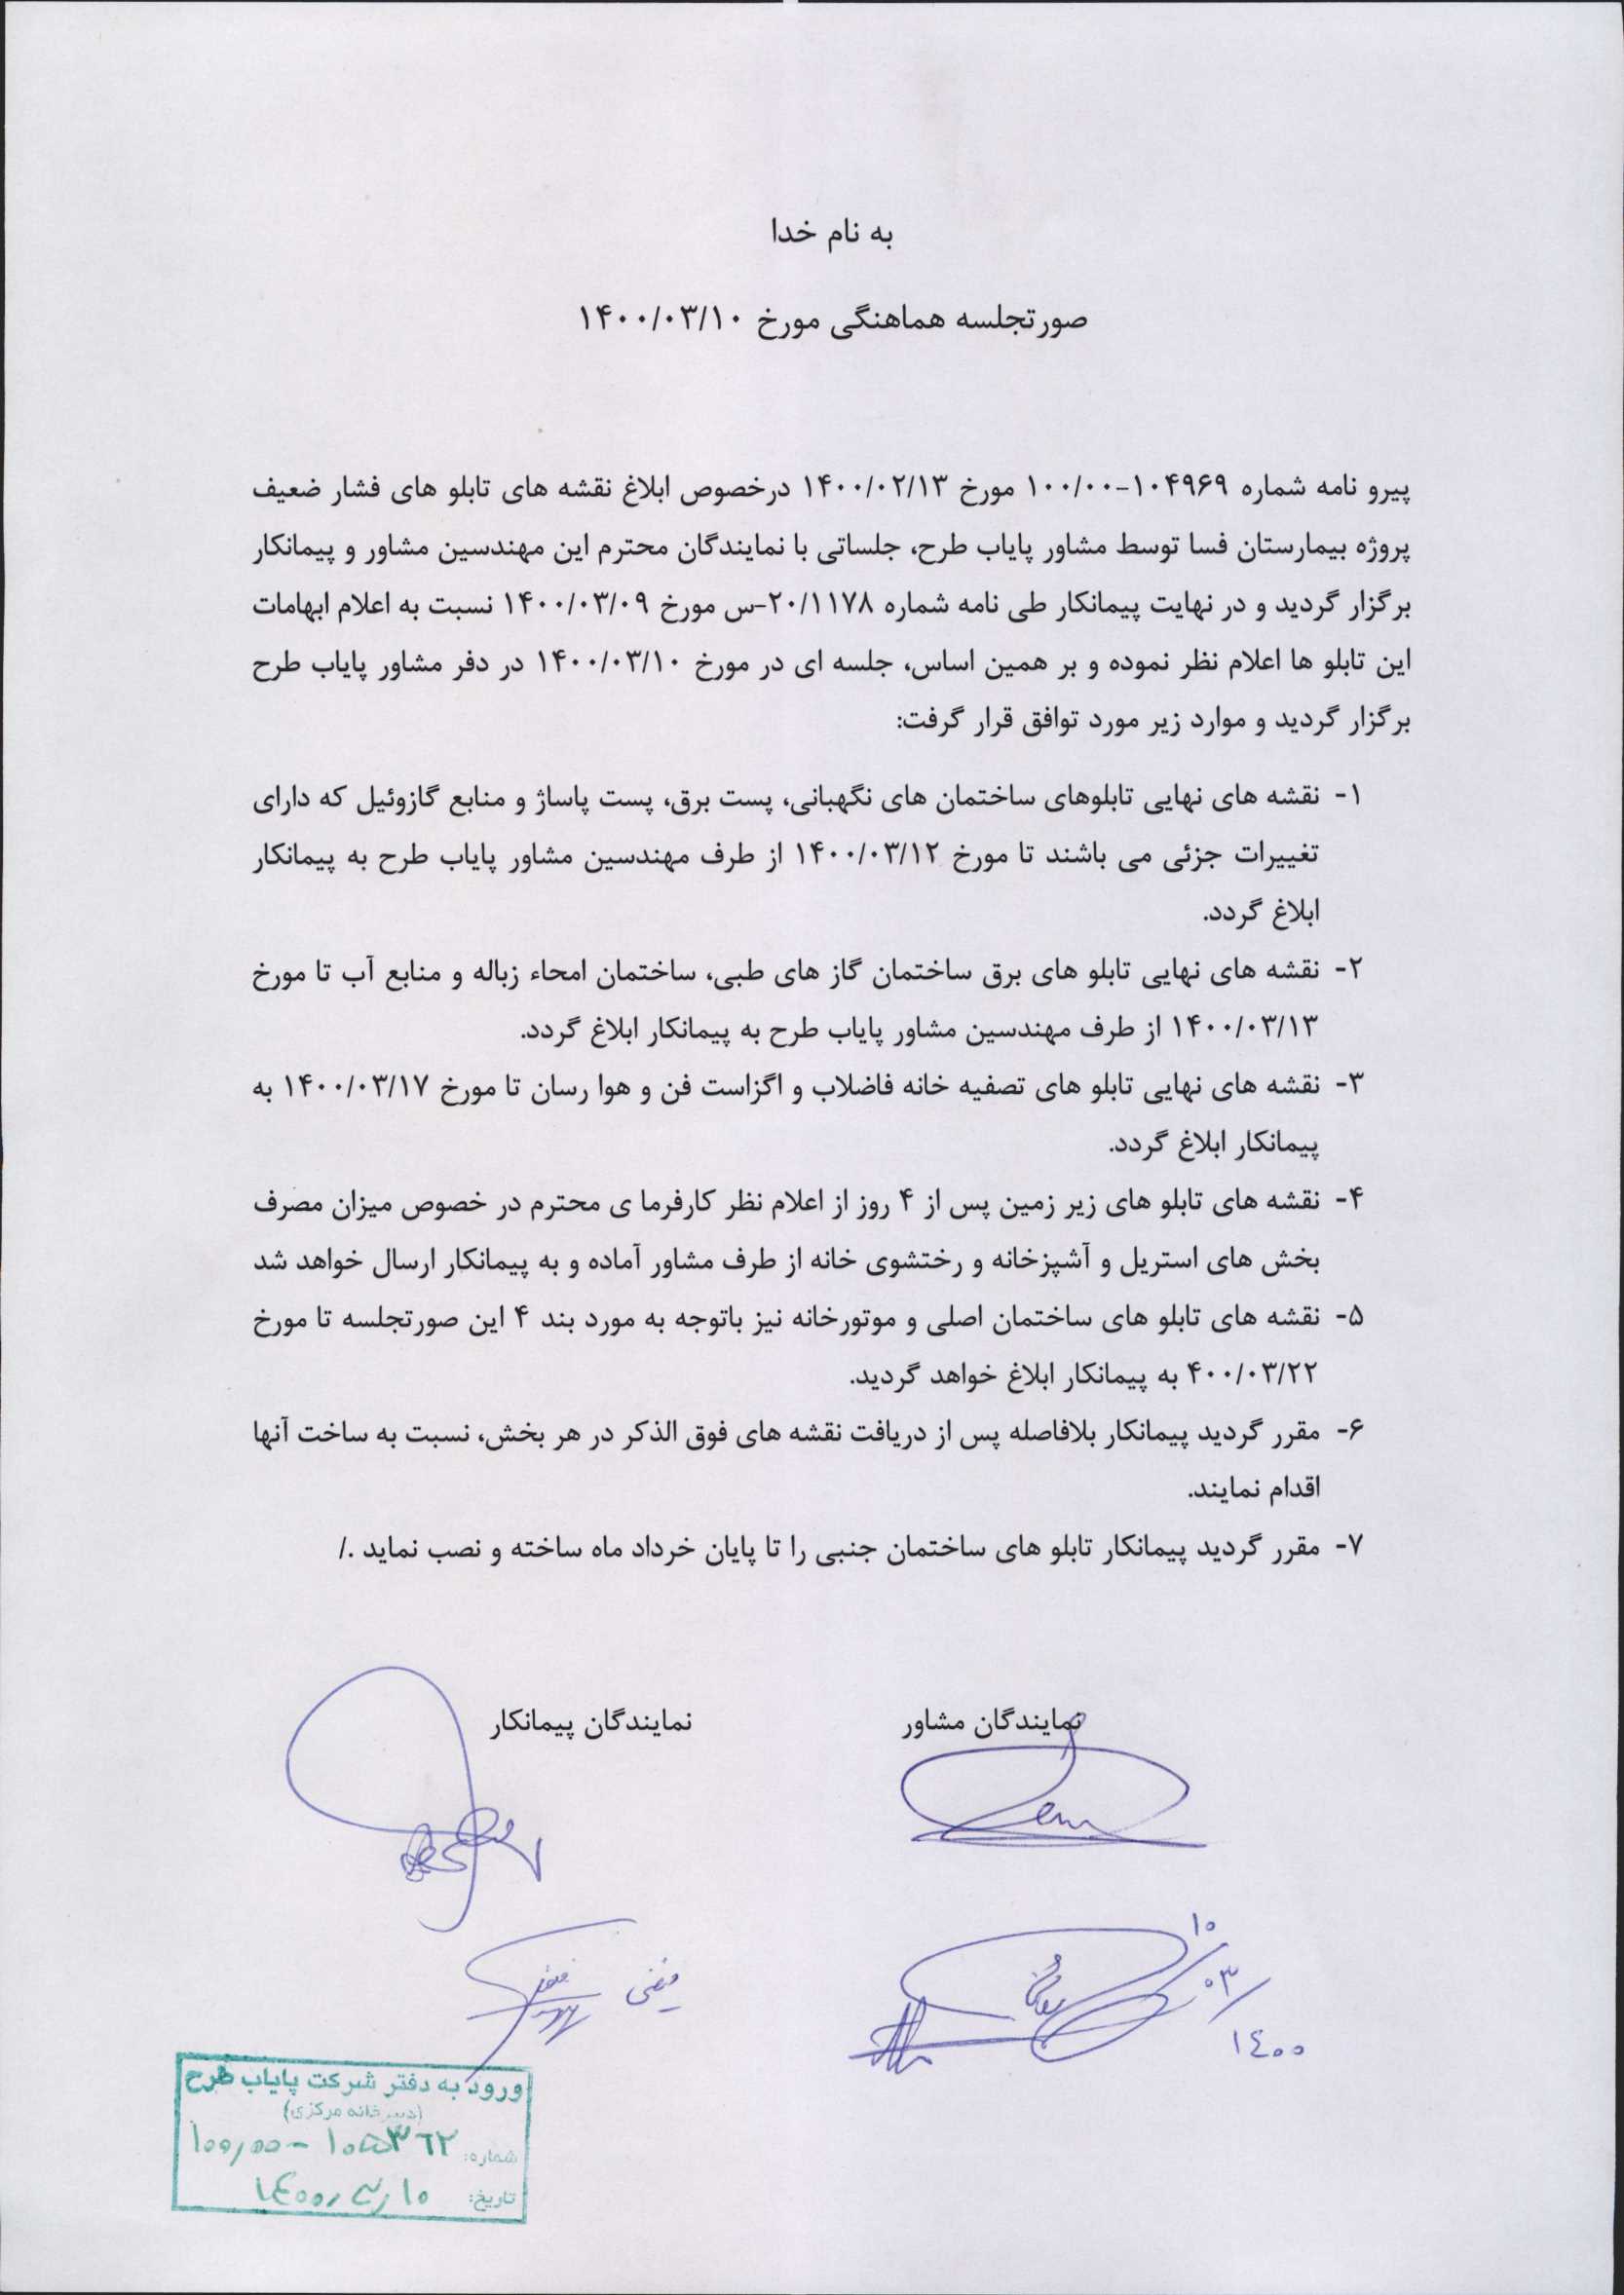 به نام خدا
صورتجلسه هماهنگی مورخ ۱۴۰۰/۰۳/۱۰
پیرو نامه شماره ۱۰۴۹۶۹-۱۰۰/۰۰ مورخ ۱۴۰۰/۰۲/۱۳ درخصوص ابلاغ نقشه های تابلو های فشار ضعیف
پروژه بیمارستان فسا توسط مشاور پایاب طرح، جلساتی با نمایندگان محترم این مهندسین مشاور و پیمانکار
برگزار گردید و در نهایت پیمانکار طی نامه شماره ۲۰/۱۱۷۸-س مورخ ۱۴۰۰/۰۳/۰۹ نسبت به اعلام ابهامات
این تابلو ها اعلام نظر نموده و بر همین اساس، جلسه ای در مورخ ۱۴۰۰/۰۳/۱۰ در دفر مشاور پایاب طرح
برگزار گردید و موارد زیر مورد توافق قرار گرفت:
۱- نقشه های نهایی تابلوهای ساختمان های نگهبانی، پست برق، پست پاساژ و منابع گازوئیل که دارای
تغییرات جزئی می باشند تا مورخ ۱۴۰۰/۰۳/۱۲ از طرف مهندسین مشاور پایاب طرح به پیمانکار
ابلاغ گردد.
۲- نقشه های نهایی تابلو های برق ساختمان گاز های طبی، ساختمان امحاء زباله و منابع آب تا مورخ
۱۴۰۰/۰۳/۱۳ از طرف مهندسین مشاور پایاب طرح به پیمانکار ابلاغ گردد.
۳- نقشه های نهایی تابلو های تصفیه خانه فاضلاب و اگزاست فن و هوا رسان تا مورخ ۱۴۰۰/۰۳/۱۷ به
پیمانکار ابلاغ گردد.
۴- نقشه های تابلو های زیر زمین پس از ۴ روز از اعلام نظر کارفرما ی محترم در خصوص میزان مصرف
بخش های استریل و آشپزخانه و رختشوی خانه از طرف مشاور آماده و به پیمانکار ارسال خواهد شد
۵- نقشه های تابلو های ساختمان اصلی و موتورخانه نیز باتوجه به مورد بند ۴ این صورتجلسه تا مورخ
۴۰۰/۰۳/۲۲ به پیمانکار ابلاغ خواهد گردید.
۶- مقرر گردید پیمانکار بلافاصله پس از دریافت نقشه های فوق الذکر در هر بخش، نسبت به ساخت آنها
اقدام نمایند.
۷- مقرر گردید پیمانکار تابلو های ساختمان جنبی را تا پایان خرداد ماه ساخته و نصب نماید ./
نمایندگان مشاور
نمایندگان پیمانکار
۱۰
۰۳
۱٤۰۰
ورود به دفتر شرکت پایاب طرح
(دبیرخانه مرکزی)
شماره: ۱۰۵۳٦۲ - ۱۰۰,۰۰
تاریخ: ۱٤۰۰,۳,۱۰